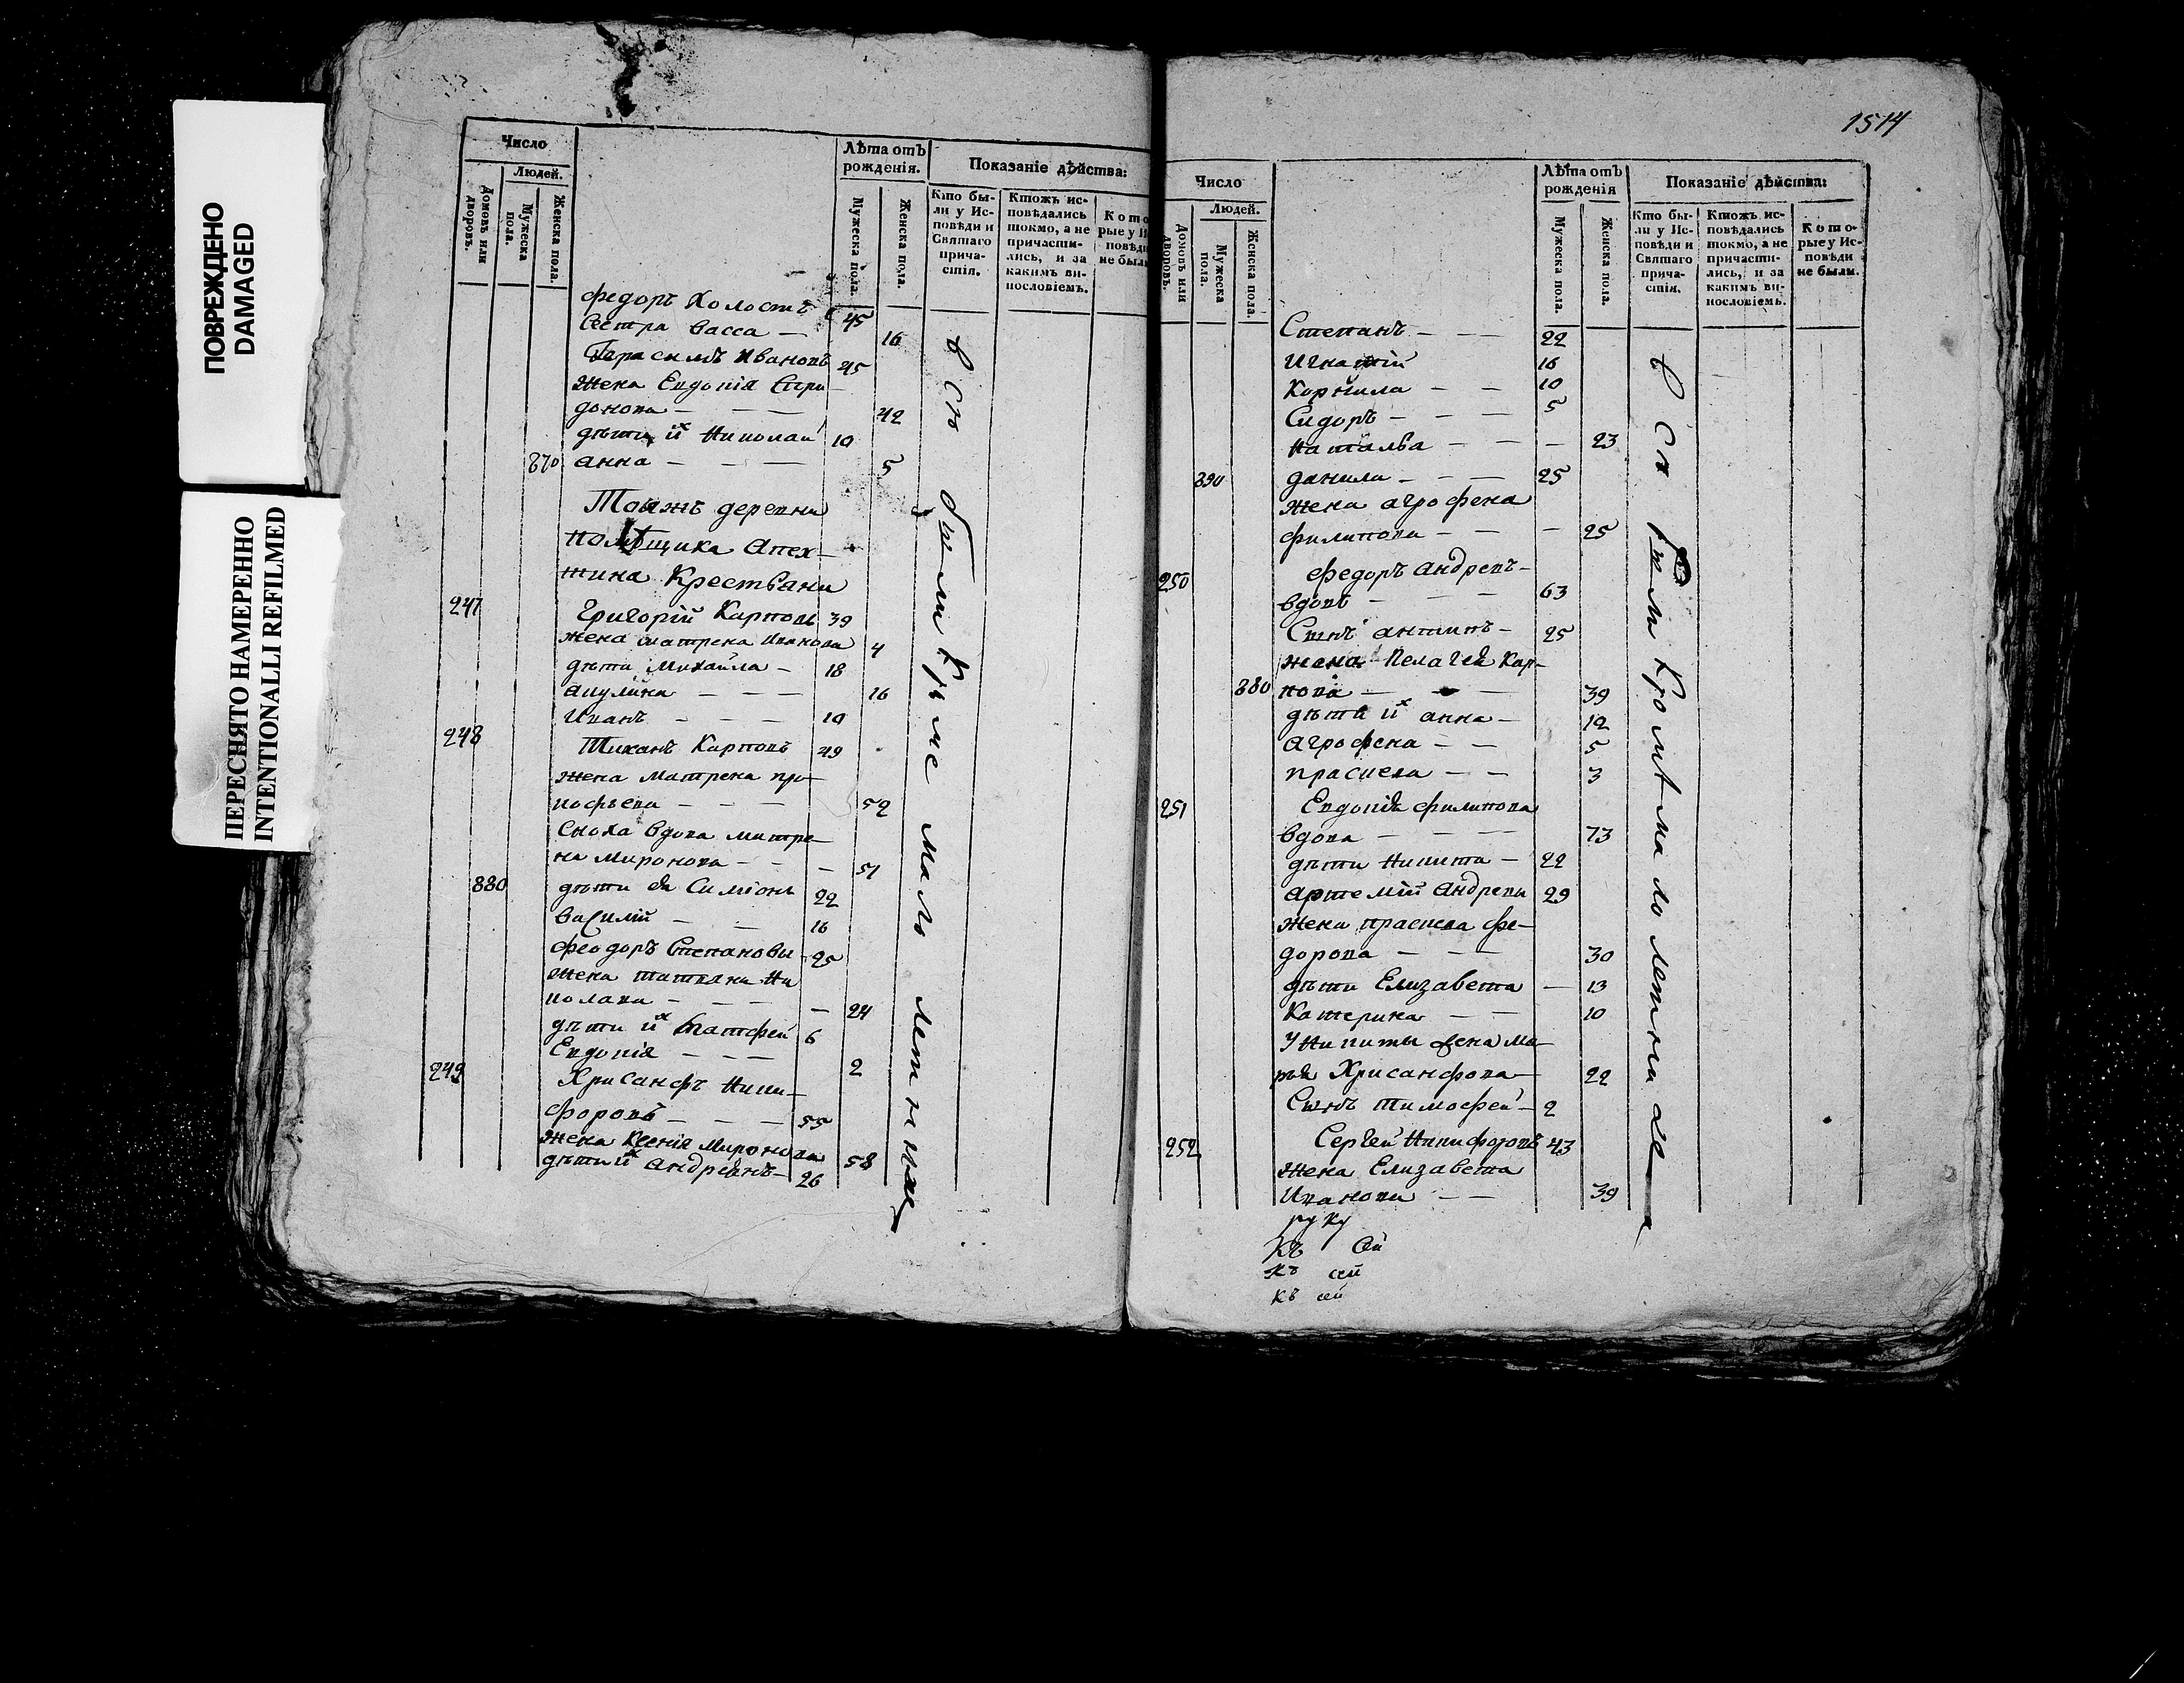 ПОВРЕЖДЕНО
DAMAGED
ПЕРЕСНЯТО НАМЕРЕННО
INTENTIONALLI REFILMED
Число
Людей.
Домовъ или дворовъ.
Мужеска пола.
Женска пола.
Лѣта отъ рожденія.
Мужеска пола.
Женска пола.
Показаніе дѣйства:
Кто бы-
ли у Ис-
повѣди и
Святаго
прича-
стія.
Ктожъ ис-
повѣдались
токмо, а не
причасти-
лись, и за
какимъ ви-
нословіемъ.
Кото
рые у И
повѣди
не были
федоръ Холостъ 45
Сестра васса — 16
Герасимъ Ивановъ 45
жена Евдокія Спри-
донова — — — 42
дѣти их Николай 10
870 анна — — — 5
Тояжъ деревни
помѣщика Апех-
тина Крестьяни
247 Григорій Карповъ 39
жена матрена Иванова 4
дѣти Михайла — 18
акулина — — — 16
Иванъ — — — 10
248 Тиханъ Карповъ 49
жена Матрена про-
кофьева — — — 52
Сноха вдова матре-
на Миронова — — — 51
880 дѣти ея Симіонъ 22
василій — — 16
феодоръ Степановъ 25
жена татиана Ни
колаева — — — — 24
дѣти их Матфей 6
Евдокія — — — 2
249 Хрисанфъ Ники-
форовъ — — — 55
жена Ксенія Миронова 58
дѣти их андреянъ — 26
всѣ были кроме малолетнихъ
1514
Число
Людей.
Домовъ или дворовъ.
Мужеска пола.
Женска пола.
Лѣта отъ рожденія
Мужеска пола.
Женска пола.
Показаніе дѣйства:
Кто бы-
ли у Ис-
повѣди и
Святаго
прича-
стія.
Ктожъ ис-
повѣдались
токмо, а не
причасти-
лись, и за
какимъ ви-
нословіемъ.
Кото-
рые у Ис-
повѣди
не были.
Степанъ — — — 22
Игнатій 16
Корнила — — 10
Сидоръ — — — 5
Наталья — — — 23
890 данила — — — 25
жена агрофена
филипова — — — 25
250 федоръ андреевъ —
вдовъ — — — 63
Сынъ антипъ — 25
жена Пелагея Кар-
880 пова — — — 39
дѣти их анна — 12
агрофена — — 5
праскева — — 3
251 Евдокія филипова
вдова — — — 73
дѣти Никита — 22
артемій андреевъ 29
жена праскева фе-
дорова — — — 30
дѣти Елизавета — 13
Катерина — — 10
У Никиты жена Ма-
рья Хрисанфова — 22
Сынъ тимофей — 2
252 Сергей Никифоровъ 43
жена Елизавета
Иванова — — 39
всѣ были кромѣ малолетнихъ
руку
Къ Сей
къ сей
къ сей